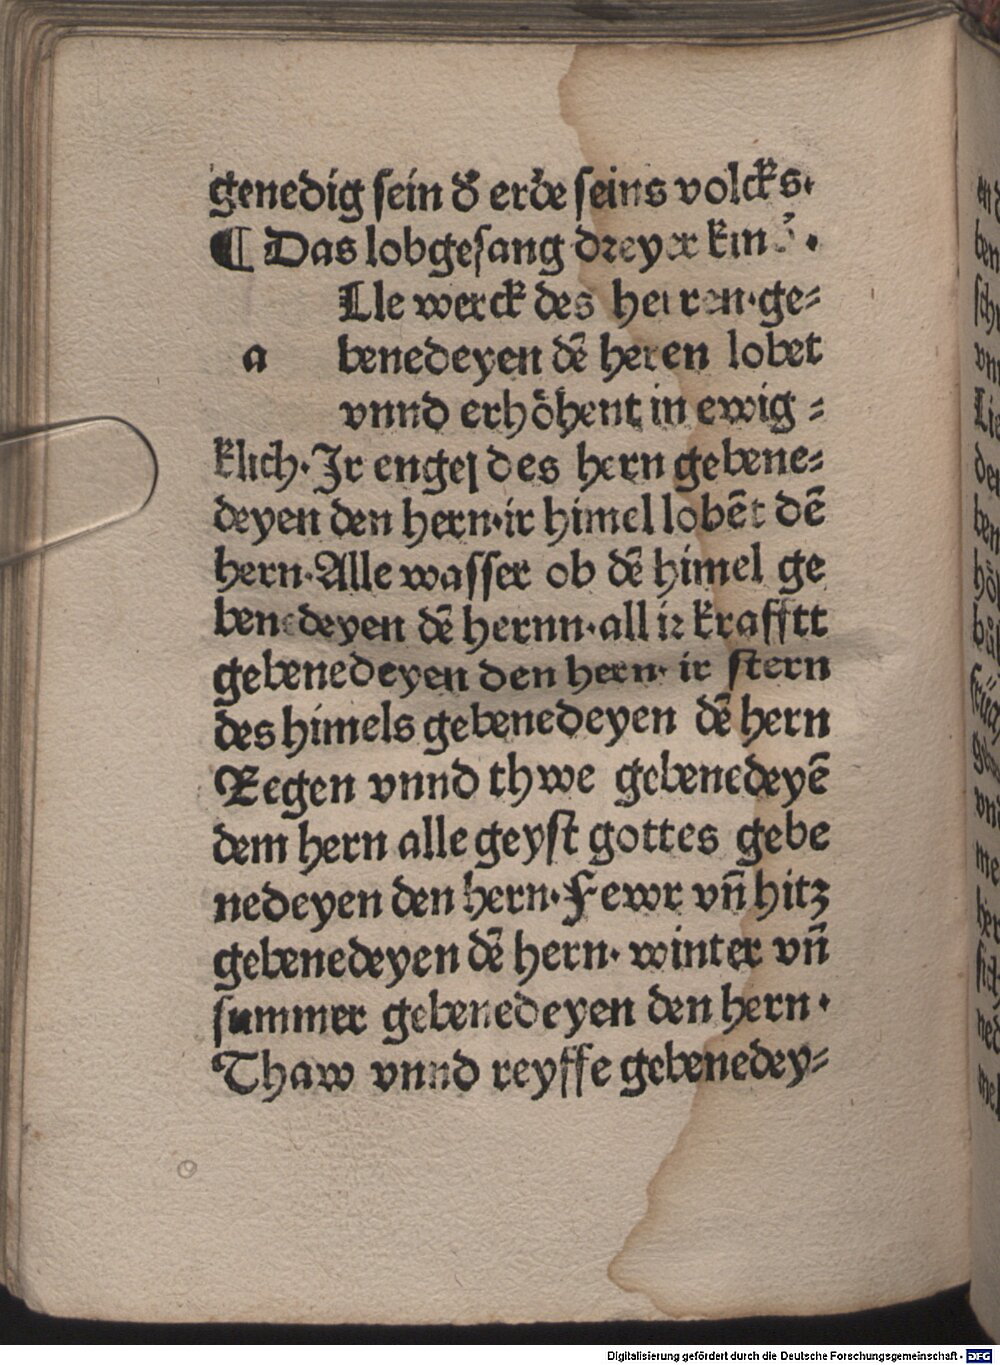 genedig sein d᷑ erd᷑e seins volck᷑s·
¶ Das lobgesang dreyer kind᷑ ·
Lle werck des herren·ge⸗
a benedeyen dē herren lobet
vnnd erhöhent in ewig ⸗
klich·Jr engel des hern gebene⸗
deyen den hern·ir himel lobēt dē
hern·Alle wasser ob dē himel ge
benedeyen dē hernn·all ir krafftt
gebenedeyen den hern· ir stern
des himels gebenedeyen dē hern
Regen vnnd thwe gebenedeyē
dem hern alle geyst gottes gebe
nedeyen den hern·Fewr vn̄ hitz
gebenedeyen dē hern· winter vn̄
summer gebenedeyen den hern·
Thaw vnnd reyffe gebenedey⸗
Digitalisierung gefördert durch die Deutsche Forschungsgemeinschaft - DFG